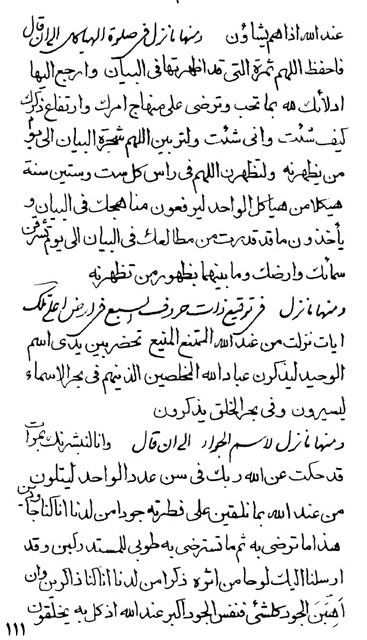 عند الله اذا هم يشاؤن ومنها ما نزل فى صلوة الهياكل الى ان قال
فاحفظ اللهم ثمرة التى قد اظهرتها فى البيان وارجع اليها
ادلائك لله بما تحب وترضى على منهاج امرك وارتفاع ذكرك
كيف شئت وانى شئت ولتربين اللهم شجرة البيان الى يوم
من يظهرنه ولتظهرن اللهم فى راس كل ست وستين سنة
هيكلا من هياكل الواحد ليرفعون مناهجك فى البيان و
يأخذون ما قد قدرت من مطالعك فى البيان الى يوم تشرقن
سمائك وارضك وما بينهما بظهور من تظهرنه
ومنها ما نزل فى توقيع ذات حروف السبع فى ارض تلك
ايات نزلت من عند الله الممتنع المنيع تحضر بين يدى اسم
الوحيد ليذكرن عباد الله المخلصين الذينهم فى بحر الاسماء
ليسيرون وفى بحر الخلق يذكرون
ومنها ما نزل لاسم الجواد الى ان قال وانا لننشرنك بجوات
قد حكت عن الله ربك فى سن عدد الواحد ليتلون
من عند الله بما تلقين على فطرته جودا من لدنا انا كنا جادين
هذا ما ترضى به ثم ما تسترضى به طوبى للمستدركين وقد
ارسلنا اليك لوحا من اثره ذكرا من لدنا انا كنا ذاكرين وان
الجود كلشئ فنفس الجود اكبر عند الله اذ كل به يخلقون
١١١